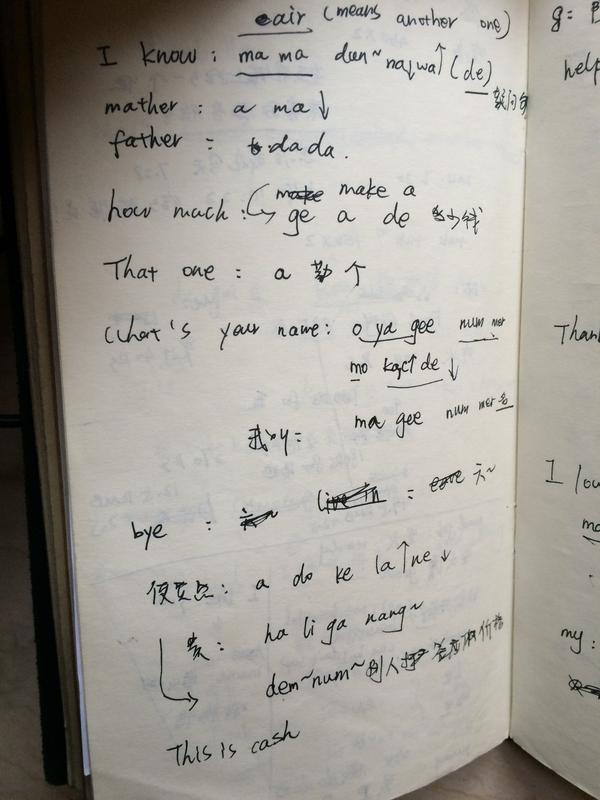 eair (means another one)
I know : ma ma dun~ na↓wa↑ (de)
疑问句
mather : a ma↓
father : dada.
make a
how much : ge a de 多少钱
That one : a 勤个
What's your name: o ya gee num mer
mo kac↑de↓
我叫= ma gee num mer 名
bye : Live in = 天~
便宜点: a do ke la↑ne↓
贵: ha li ga nang~
dem~num~ 别人
This is cash
g:
help
Than
I lou
ma
my: